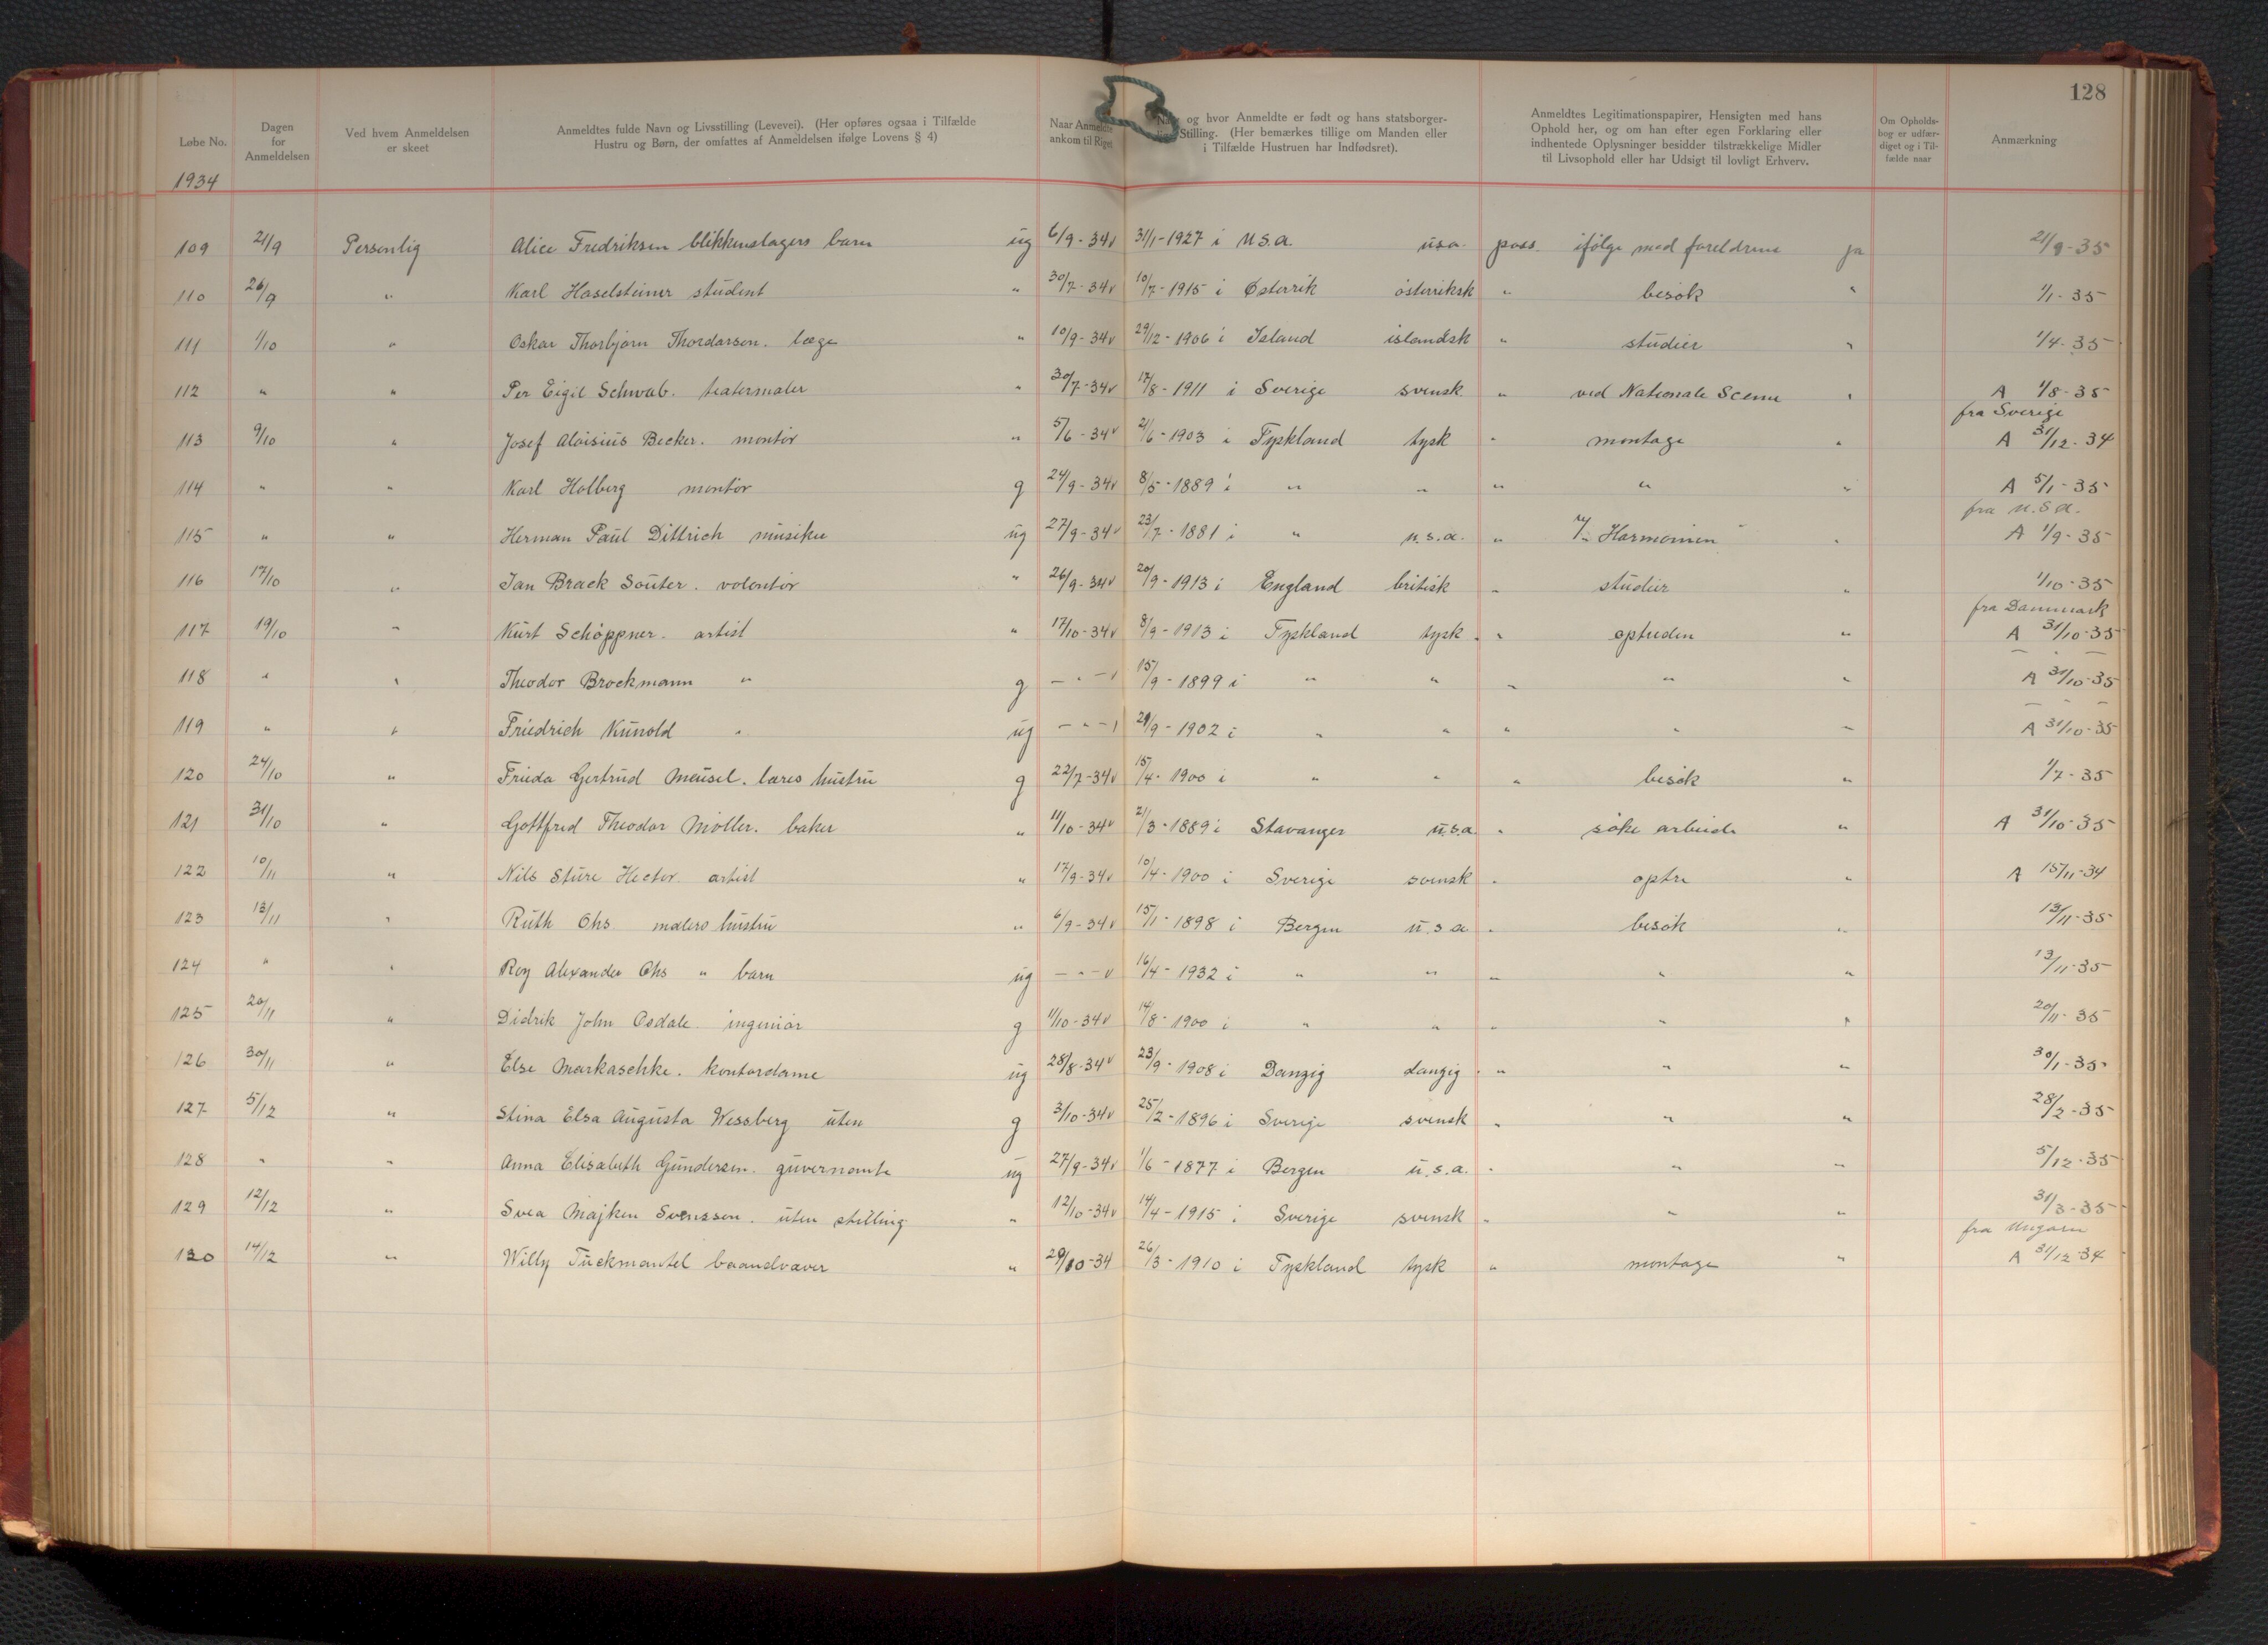 128
Løbe No.
Dagen for Anmeldelsen
Ved hvem Anmeldelsen er skeet
Anmeldtes fulde Navn og Livsstilling (Levevei). (Her opføres ogsaa i Tilfælde
Hustru og Børn, der omfattes af Anmeldelsen ifølge Lovens § 4)
Naar Anmeldte ankom til Riget
og hvor Anmeldte er født og hans statsborger-
Stilling. (Her bemærkes tillige om Manden eller
i Tilfælde Hustruen har Indfødsret).
Anmeldtes Legitimationspapirer, Hensigten med hans
Ophold her, og om han efter egen Forklaring eller
indhentede Oplysninger besidder tilstrækkelige Midler
til Livsophold eller har Udsigt til lovligt Erhverv.
Om Opholds-
bog er udfær-
diget og i Til-
fælde naar
Anmærkning
1934
109 21/9 Personlig Alice Fredriksen blikkenslagers barn ug 6/9-34 v 31/1-1927 i U.S.A. usa. pass. ifölge med foreldrene ja 21/9-35
110 26/9 " Karl Haselsteiner student " 30/7-34 v 10/7-1915 i Østerrik österriksk " besök " 1/1-35
111 1/10 " Oskar Thorbjörn Thordarson. læge " 10/9-34 v 29/12-1906 i Island islandsk " studier " 1/4-35
112 " " Per Eigil Schwab. teatermaler " 30/7-34 v 17/8-1911 i Sverige svensk " ved Nationale Scene " A 1/8-35
fra Sverige
113 9/10 " Josef Aloisius Becker. montör " 5/6-34 v 21/6-1903 i Tyskland tysk " montage " A 31/12-34
114 " " Karl Holberg montör g 24/9-34 v 8/5-1889 i " " " " " A 5/1-35
fra U.S.A.
115 " " Herman Paul Dittrich musiker ug 27/9-34 v 23/7-1881 i " u.s.a. " Harmonien " A 1/9-35
116 17/10 " Ian Brack Souter. volontör " 26/9-34 v 20/9-1913 i England britisk " studier " 1/10-35
fra Danmark
117 19/10 " Kurt Schöppner. artist " 17/10-34 v 8/9-1913 i Tyskland tysk " optreden " A 31/10-35
118 " " Theodor Brockmann " g - " - 15/9-1899 i " " " " " A 31/10-35
119 " " Friedrich Kunold " ug - " - 29/9-1902 i " " " " " A 31/10-35
120 24/10 " Frieda Gertrud Meusel. læres hustru g 22/7-34 v 15/4-1900 i " " " besök " 1/7-35
121 31/10 " Gottfred Theodor Möller. baker " 11/10-34 v 21/3-1889 i Stavanger u.s.a. " söke arbeide " A 31/10-35
122 10/11 " Nils Sture Hector. artist " 17/9-34 v 10/4-1900 i Sverige svensk " optre " A 15/11-34
123 13/11 " Ruth Ohs malers hustru " 6/9-34 v 15/1-1898 i Bergen u.s.a " besök " 13/11-35
124 " " Roy Alexander Ohs " barn ug - " - v 16/4-1932 i " " " " " 13/11-35
125 20/11 " Didrik John Osdale. ingeniör g 11/10-34 v 14/8-1900 i " " " " " 20/11-35
126 30/11 " Else Markaschke. kontordame ug 28/8-34 v 23/9-1908 i Danzig danzig " " " 30/1-35
127 5/12 " Stina Elsa Augusta Wessberg uten g 3/10-34 v 25/2-1896 i Sverige svensk " " " 28/2-35
128 " " Anna Elisabeth Gundersen. guvernante ug 27/9-34 v 1/6-1877 i Bergen u.s.a. " " " 5/12-35
129 12/12 " Svea Majken Svensson. uten stilling " 12/10-34 v 14/4-1915 i Sverige svensk " " " 31/3-35
fra Ungarn
130 14/12 " Willy Tuckmantel baandvæver " 29/10-34 26/3-1910 i Tyskland tysk " montage " A 31/12-34